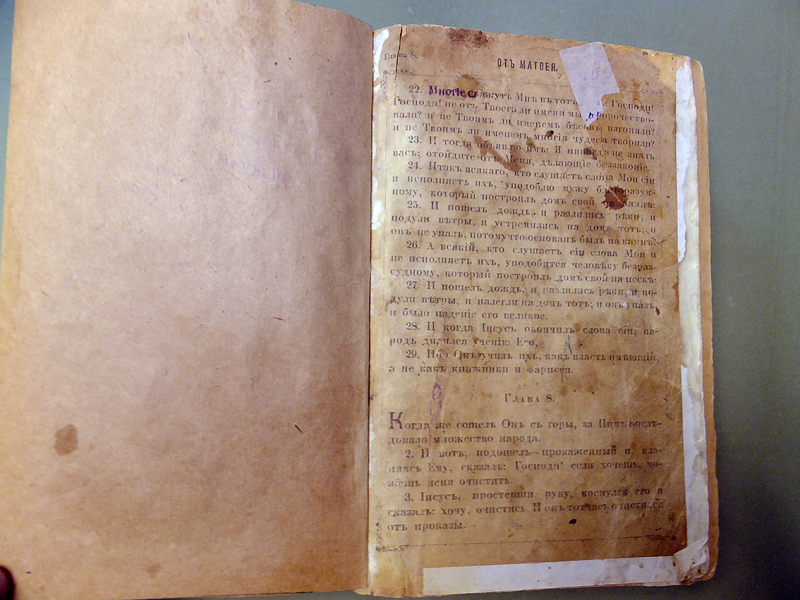 Глава 8.
ОТЪ МАТѲЕЯ.
22. Многіе скажутъ Мнѣ въ тотъ Господи!
Господи! не отъ Твоего ли имени мы пророчество-
вали? и не Твоимъ ли именемъ бѣсовъ изгоняли?
и не Твоимъ ли именемъ многія чудеса творили?
23. И тогда объявлю имъ: Я никогда не зналъ
васъ; отойдите отъ Меня, дѣлающіе беззаконіе.
24. Итакъ всякаго, кто слушаетъ слова Мои сіи
и исполняетъ ихъ, уподоблю мужу благоразум-
ному, который построилъ домъ свой на камнѣ;
25. И пошелъ дождь, и разлились рѣки, и
подули вѣтры, и устремились на домъ тотъ; и
онъ не упалъ, потому что основанъ былъ на камнѣ.
26. А всякій, кто слушаетъ сіи слова Мои и
не исполняетъ ихъ, уподобится человѣку безраз-
судному, который построилъ домъ свой на пескѣ;
27. И пошелъ дождь, и разлились рѣки, и по-
дули вѣтры, и налегли на домъ тотъ; и онъ упалъ,
и было паденіе его великое.
28. И когда Іисусъ окончилъ слова сіи, на-
родъ дивился ученію Его,
29. Ибо Онъ училъ ихъ, какъ власть имѣющій,
а не какъ книжники и фарисеи.
Глава 8.
Когда же сошелъ Онъ съ горы, за Нимъ послѣ-
довало множество народа.
2. И вотъ, подошелъ прокаженный и, кла-
няясь Ему, сказалъ: Господи! если хочешь, мо-
жешь меня очистить.
3. Іисусъ, простерши руку, коснулся его и
сказалъ: хочу, очистись. И онъ тотчасъ очистился
отъ проказы.